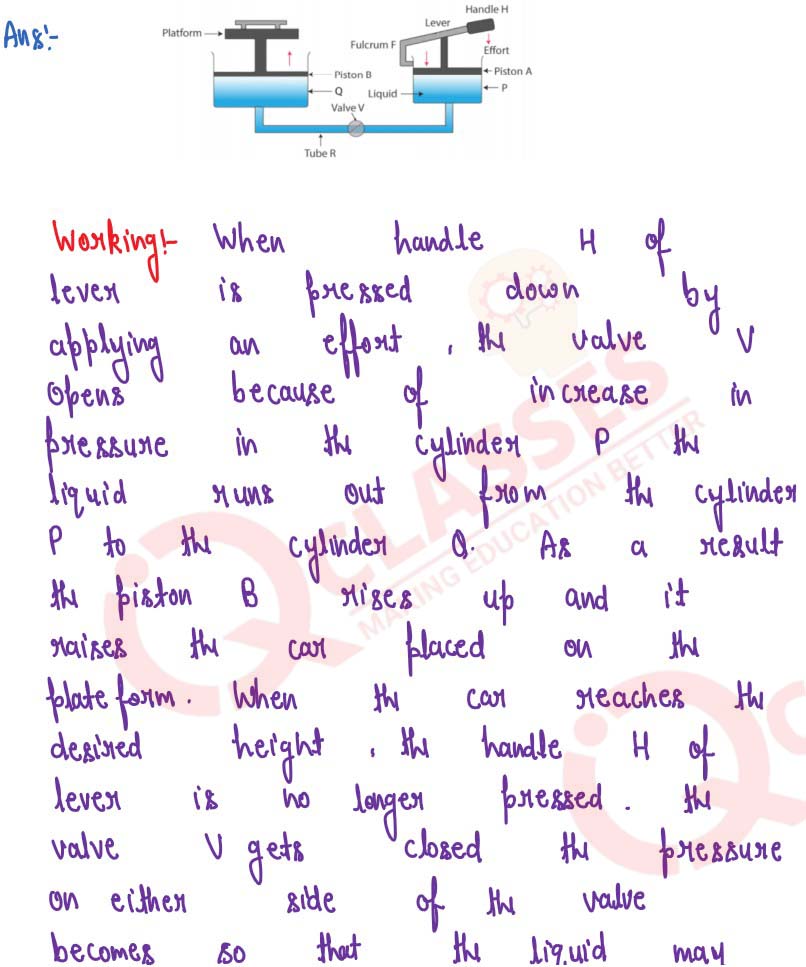 Ans:-
Handle H
Lever
Platform
Fulcrum F
Effort
Piston B
Piston A
Q
Liquid
P
Valve V
Tube R
Working:- When handle H of
lever is pressed down by
applying an effort, the valve V
Opens because of increase in
pressure in the cylinder P the
liquid runs out from the cylinder
P to the cylinder Q. As a result
the piston B rises up and it
raises the car placed on the
plateform. When the car reaches the
desired height, the handle H of
lever is no longer pressed. the
valve V gets closed the pressure
on either side of the valve
becomes so that the liquid may
IQ CLASSES
MAKING EDUCATION BETTER